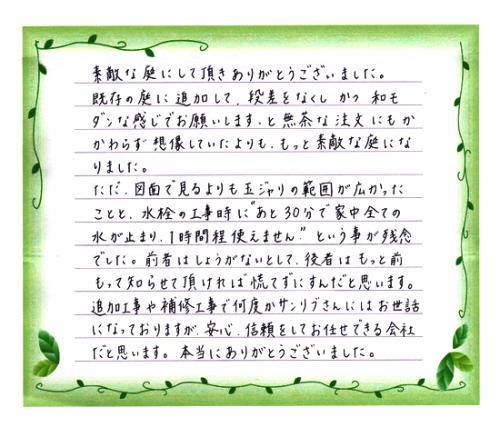 素敵な庭にして頂きありがとうございました。
既存の庭に追加して、段差をなくしかつ和モ
ダンな感じでお願いします、と無茶な注文にもか
かわらず想像していたよりも、もっと素敵な庭にな
りました。
ただ、図面で見るよりも玉ジャリの範囲が広かった
ことと、水栓の工事時に"あと30分で家中全ての
水が止まり、1時間程使えません"という事が残念
でした。前者はしょうがないとして、後者はもっと前
もって知らせて頂ければ慌てずにすんだと思います。
追加工事や補修工事で何度かサンリブさんにはお世話
になっておりますが、安心、信頼をしてお任せできる会社
だと思います。本当にありがとうございました。